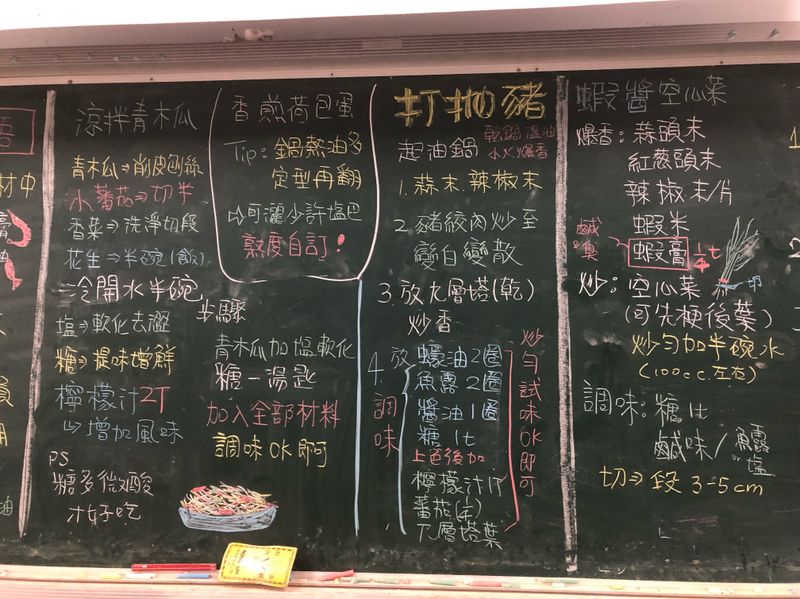 語
材
中
膏
油
油
涼拌青木瓜
青木瓜⇒削皮刨絲
小蕃茄⇒切半
香菜⇒洗淨切段
花生⇒半碗(飯)
冷開水半碗
塩⇒軟化去澀
糖⇒提味增鮮
檸檬汁2T
↳增加風味
PS
糖多微酸
才好吃
香煎荷包蛋
Tip: 鍋熱油多
定型再翻
⇨可灑少許塩巴
熟度自訂!
步驟
青木瓜加塩軟化
糖一湯匙
加入全部材料
調味OK即可
打拋豬
起油鍋 乾鍋溫油
小火爆香
1. 蒜末.辣椒末
2. 豬絞肉炒至
變白變散
3. 放九層塔(乾)
炒香
4. 放調味
蠔油2圈
魚露2圈
醬油1圈
糖1t
上色後加
檸檬汁1T
蕃茄(片)
九層塔葉
炒勻試味OK即可
蝦醬空心菜
爆香: 蒜頭末
紅蔥頭末
辣椒末/片
蝦米
鹹臭 蝦膏 1/4t
炒: 空心菜
(可先梗後葉)
炒勻加半碗水
(100c.c.左右)
調味: 糖1t
鹹味/魚露
or 塩
切⇒段 3-5cm